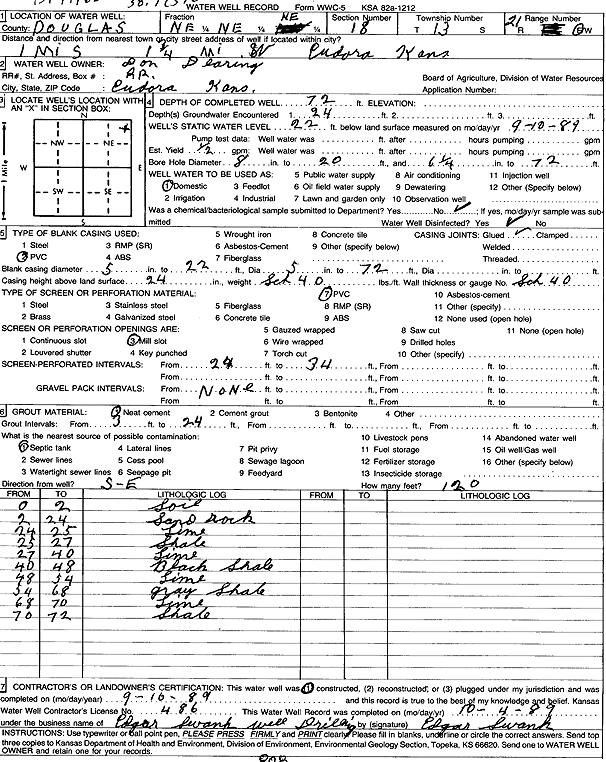 WATER WELL RECORD Form WWC-5 KSA 82a-1212
1 LOCATION OF WATER WELL: Fraction NE Section Number Township Number Range Number
County: DOUGLAS NE ¼ NE ¼ ¼ 18 T 13 S R 21 E/W
Distance and direction from nearest town or city street address of well if located within city?
1 MI S 1 ¼ Mi W Eudora Kans
2 WATER WELL OWNER: Don Dearing
RR#, St. Address, Box # : RR. Board of Agriculture, Division of Water Resources
City, State, ZIP Code : Eudora Kans. Application Number:
3 LOCATE WELL'S LOCATION WITH AN "X" IN SECTION BOX:
N
NW NE
W E
SW SE
S
1 Mile
4 DEPTH OF COMPLETED WELL 72 ft. ELEVATION:
Depth(s) Groundwater Encountered 1. 24 ft. 2. ft. 3.
WELL'S STATIC WATER LEVEL 22 ft. below land surface measured on mo/day/yr 9-10-89
Pump test data: Well water was ft. after hours pumping gpm
Est. Yield ½ gpm: Well water was ft. after hours pumping gpm
Bore Hole Diameter 8 in. to 20 ft., and 6¼ in. to 72 ft.
WELL WATER TO BE USED AS: 5 Public water supply 8 Air conditioning 11 Injection well
1 Domestic 3 Feedlot 6 Oil field water supply 9 Dewatering 12 Other (Specify below)
2 Irrigation 4 Industrial 7 Lawn and garden only 10 Observation well
Was a chemical/bacteriological sample submitted to Department? Yes No ✓; If yes, mo/day/yr sample was submitted
Water Well Disinfected? Yes ✓ No
5 TYPE OF BLANK CASING USED: 5 Wrought iron 8 Concrete tile CASING JOINTS: Glued ✓ Clamped
1 Steel 3 RMP (SR) 6 Asbestos-Cement 9 Other (specify below) Welded
2 PVC 4 ABS 7 Fiberglass Threaded
Blank casing diameter 5 in. to 22 ft., Dia 5 in. to 72 ft., Dia in. to ft.
Casing height above land surface 24 in., weight Sch 40 lbs./ft. Wall thickness or gauge No. Sch 40
TYPE OF SCREEN OR PERFORATION MATERIAL: 7 PVC 10 Asbestos-cement
1 Steel 3 Stainless steel 5 Fiberglass 8 RMP (SR) 11 Other (specify)
2 Brass 4 Galvanized steel 6 Concrete tile 9 ABS 12 None used (open hole)
SCREEN OR PERFORATION OPENINGS ARE: 5 Gauzed wrapped 8 Saw cut 11 None (open hole)
1 Continuous slot 3 Mill slot 6 Wire wrapped 9 Drilled holes
2 Louvered shutter 4 Key punched 7 Torch cut 10 Other (specify)
SCREEN-PERFORATED INTERVALS: From 24 ft. to 34 ft., From ft. to ft.
From ft. to ft., From ft. to ft.
GRAVEL PACK INTERVALS: From None ft. to ft., From ft. to ft.
From ft. to ft., From ft. to ft.
6 GROUT MATERIAL: 1 Neat cement 2 Cement grout 3 Bentonite 4 Other
Grout Intervals: From 3 ft. to 24 ft., From ft. to ft., From ft. to ft.
What is the nearest source of possible contamination: 10 Livestock pens 14 Abandoned water well
1 Septic tank 4 Lateral lines 7 Pit privy 11 Fuel storage 15 Oil well/Gas well
2 Sewer lines 5 Cess pool 8 Sewage lagoon 12 Fertilizer storage 16 Other (specify below)
3 Watertight sewer lines 6 Seepage pit 9 Feedyard 13 Insecticide storage
Direction from well? S-E How many feet? 120
FROM TO LITHOLOGIC LOG FROM TO LITHOLOGIC LOG
0 2 Soil
2 24 Sand Rock
24 25 Lime
25 27 Shale
27 40 Lime
40 48 Black Shale
48 54 Lime
54 68 Gray Shale
68 70 Lime
70 72 Shale
7 CONTRACTOR'S OR LANDOWNER'S CERTIFICATION: This water well was (1) constructed, (2) reconstructed, or (3) plugged under my jurisdiction and was
completed on (mo/day/year) 9-10-89 and this record is true to the best of my knowledge and belief. Kansas
Water Well Contractor's License No. 486 This Water Well Record was completed on (mo/day/yr) 10-4-89
under the business name of Edgar Swank Well Drilling by (signature) Edgar Swank
INSTRUCTIONS: Use typewriter or ball point pen, PLEASE PRESS FIRMLY and PRINT clearly. Please fill in blanks, underline or circle the correct answers. Send top
three copies to Kansas Department of Health and Environment, Division of Environment, Environmental Geology Section, Topeka, KS 66620. Send one to WATER WELL
OWNER and retain one for your records.